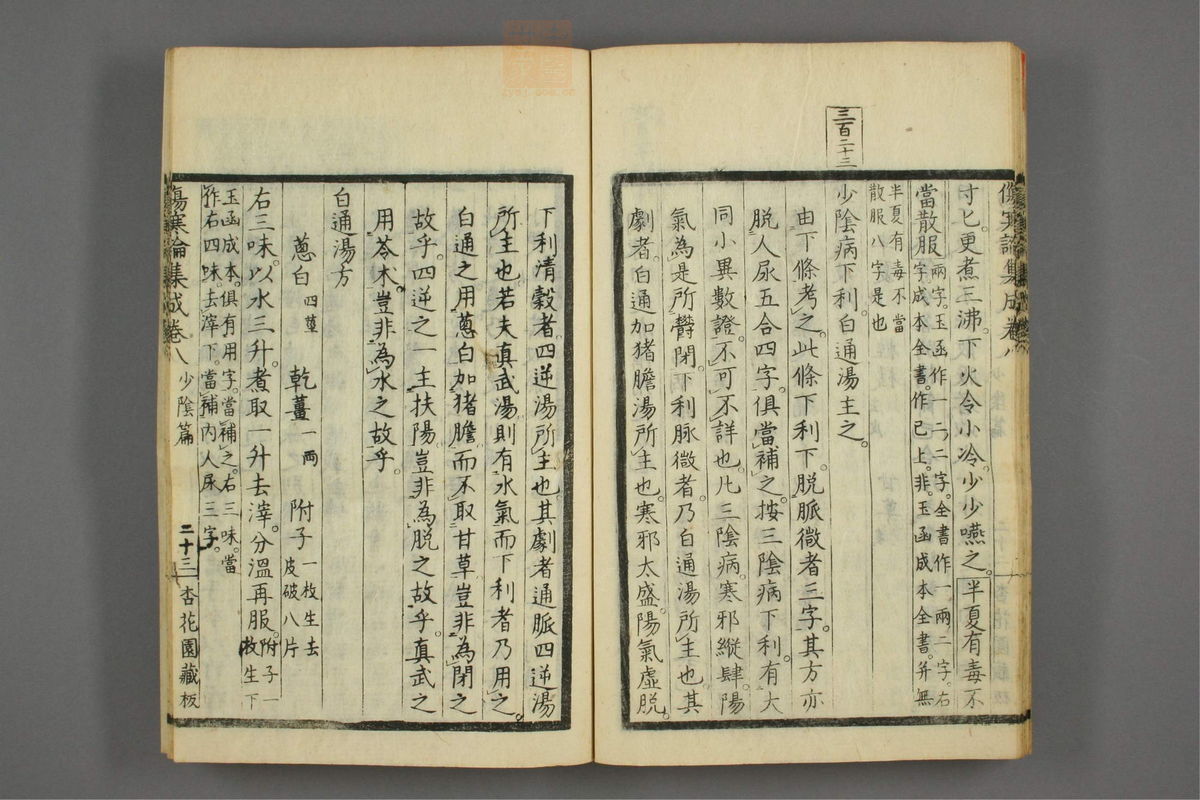 三百二十三
寸匕更煮三沸下火令小冷少少嚥之半夏有毒不
當散服兩字玉函作一二字全書作一兩二字右
字成本全書作已上非玉函成本全書并無
半夏有毒不當
散服八字是也
少陰病下利白通湯主之
由下條考之此條下利下脱脈微者三字其方亦
脱人尿五合四字俱當補之按三陰病下利有大
同小異數證不可不詳也凡三陰病寒邪縱肆陽
氣為是所欝閉下利脈微者乃白通湯所主也其
劇者白通加猪膽湯所主也寒邪太盛陽氣虛脱
傷寒論集成卷八
下利清穀者四逆湯所主也其劇者通脈四逆湯
所主也若夫真武湯則有水氣而下利者乃用之
白通之用蔥白加猪膽而不取甘草豈非為閉之
故乎四逆之一主扶陽豈非為脱之故乎真武之
用苓朮豈非為水之故乎
白通湯方
蔥白四莖 乾薑一兩 附子一枚生去皮破八片
右三味以水三升煮取一升去滓分溫再服附子一
枚生下
玉函成本俱有用字當補之右三味當
作右四味去滓下當補内人尿三字
傷寒論集成卷八 少陰篇 二十三 杏花園藏板